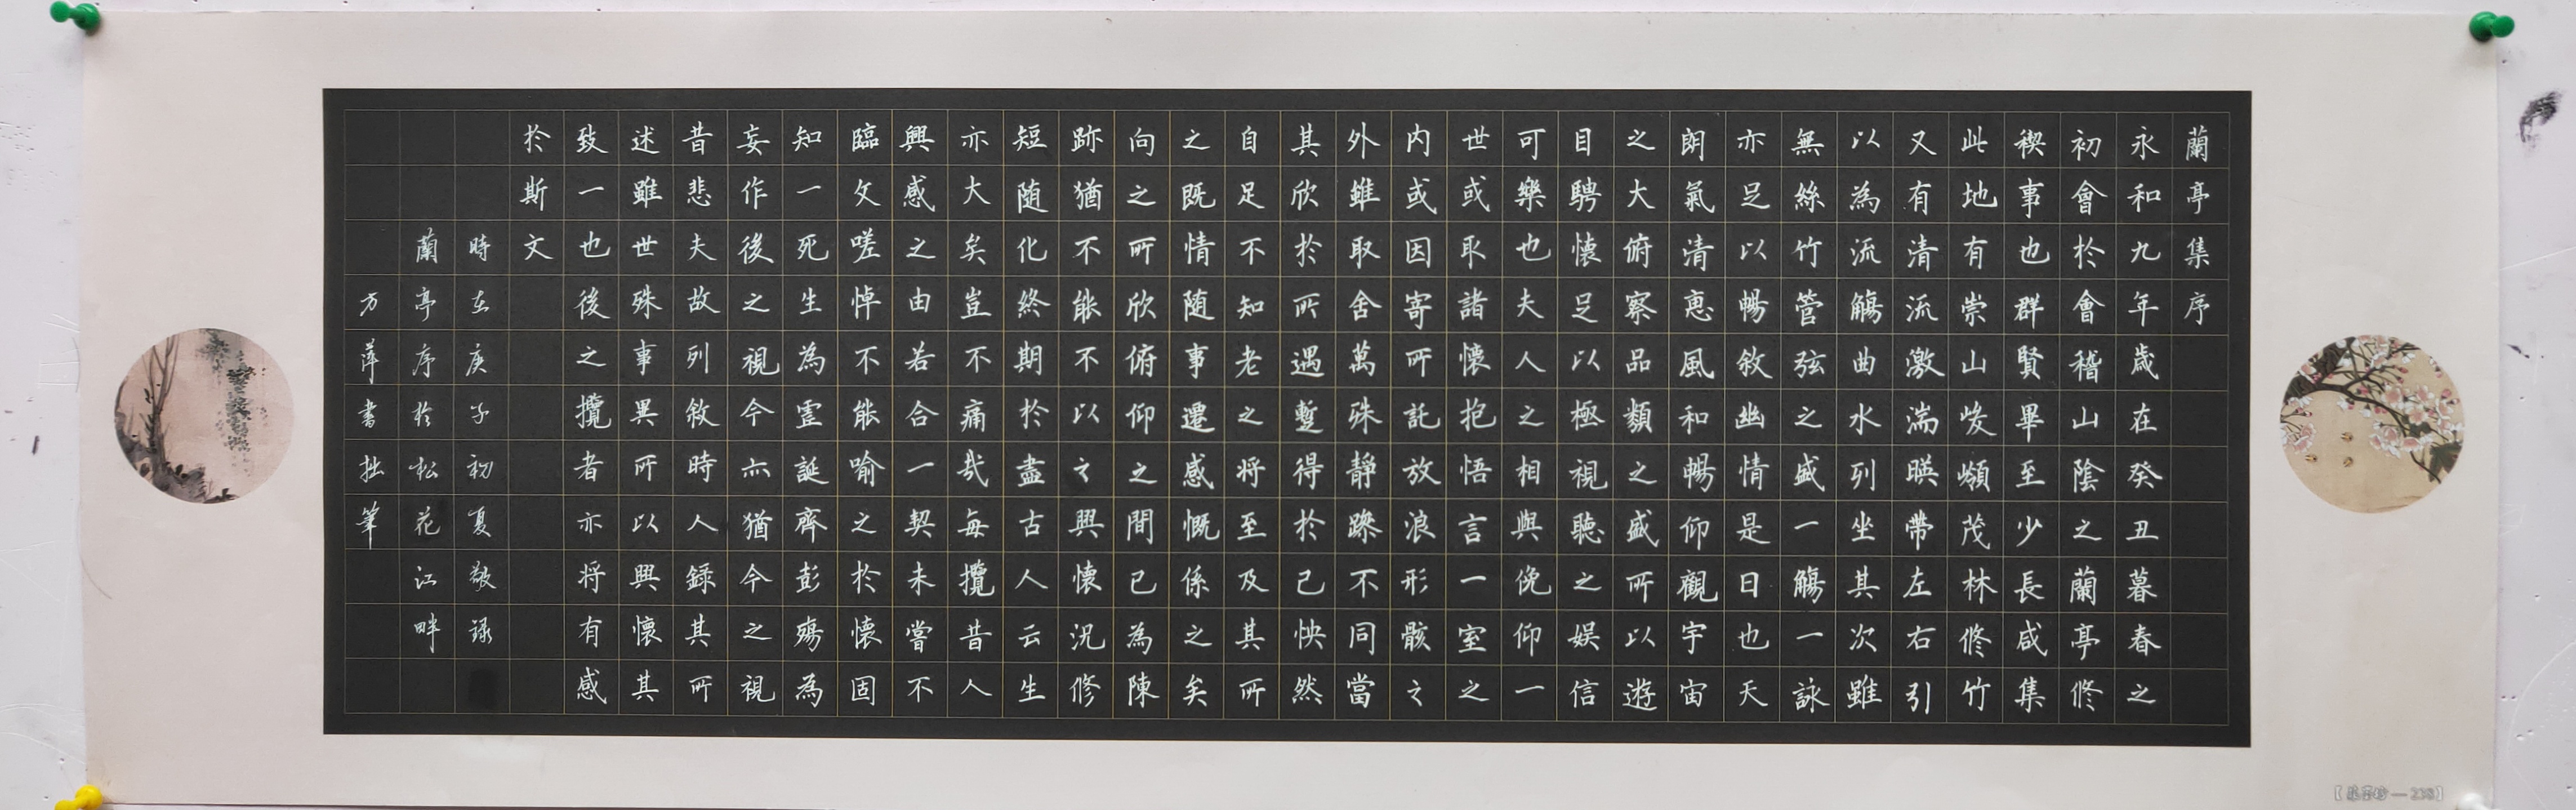 蘭亭集序
永和九年歲在癸丑暮春之
初會於會稽山陰之蘭亭修
禊事也群賢畢至少長咸集
此地有崇山峻嶺茂林修竹
又有清流激湍暎帶左右引
以為流觴曲水列坐其次雖
無絲竹管弦之盛一觴一詠
亦足以暢敘幽情是日也天
朗氣清惠風和暢仰觀宇宙
之大俯察品類之盛所以遊
目騁懷足以極視聽之娛信
可樂也夫人之相與俛仰一
世或取諸懷抱悟言一室之
內或因寄所託放浪形骸之
外雖取舍萬殊靜躁不同當
其欣於所遇蹔得於己怏然
自足不知老之将至及其所
之既情随事遷感慨係之矣
向之所欣俯仰之間已為陳
跡猶不能不以之興懷況修
短随化終期於盡古人云生
亦大矣豈不痛哉每攬昔人
興感之由若合一契未嘗不
臨文嗟悼不能喻之於懷固
知一死生為虛誕齊彭殤為
妄作後之視今亦猶今之視
昔悲夫故列敘時人錄其所
述雖世殊事異所以興懷其
致一也後之攬者亦将有感
於斯文
時在庚子初夏敬錄
蘭亭序於松花江畔
方萍書拙筆